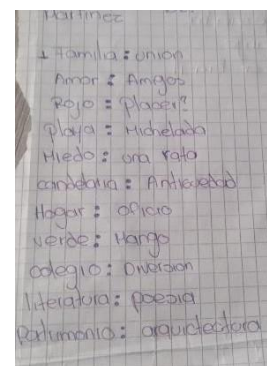 Martinez
1 Familia: union
Amor: Amigos
Rojo = Placer?
Playa = Michelada
Miedo: una rata
candelaria: Antiguedad
Hogar: oficio
verde: Mango
colegio: Diversion
literatura: poesia
Patrimonio: arquictectura